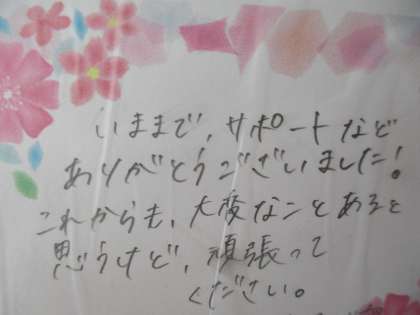 いままで、サポートなど
ありがとうございました!
これからも、大変なことあると
思うけど、頑張って
ください。